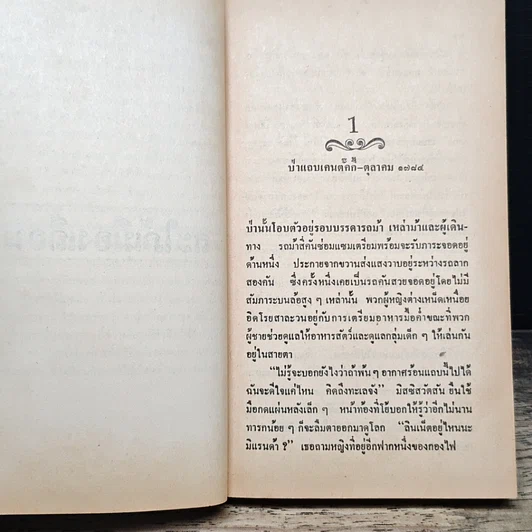 1
ป่าแถบเคนตั๊กกี้-ตุลาคม ๑๗๘๔
ป่านั้นโอบตัวอยู่รอบบรรดารถม้า เหล่าม้าและผู้เดิน-
ทาง รถม้าสี่คันซ่อมแซมเตรียมพร้อมจะรับภาระจอดอยู่
ด้านหนึ่ง ประกายจากขวานส่งแสงวาบอยู่ระหว่างรถลาก
สองคัน ซึ่งครั้งหนึ่งเคยเป็นรถคันสวยจอดอยู่โดยไม่มี
สัมภาระบนล้อสูง ๆ เหล่านั้น พวกผู้หญิงต่างเหน็ดเหนื่อย
อิดโรยสาละวนอยู่กับการเตรียมอาหารมื้อค่ำขณะที่พวก
ผู้ชายช่วยดูแลให้อาหารสัตว์และดูแลกลุ่มเด็ก ๆ ให้เล่นกัน
อยู่ในสายตา
“ไม่รู้จะบอกยังไงว่าถ้าพ้น ๆ อากาศร้อนแถบนี้ไปได้
ฉันจะดีใจแค่ไหน คิดถึงทะเลจัง” มิสซิสวัตสัน ยืนใช้
มือกดแผ่นหลังเล็ก ๆ หน้าท้องที่โย้บอกให้รู้ว่าอีกไม่นาน
ทารกน้อย ๆ ก็จะลืมตาออกมาดูโลก “ลินเน็ตอยู่ไหนนะ
มิแรนด้า ?” เธอถามหญิงที่อยู่อีกฟากหนึ่งของกองไฟ